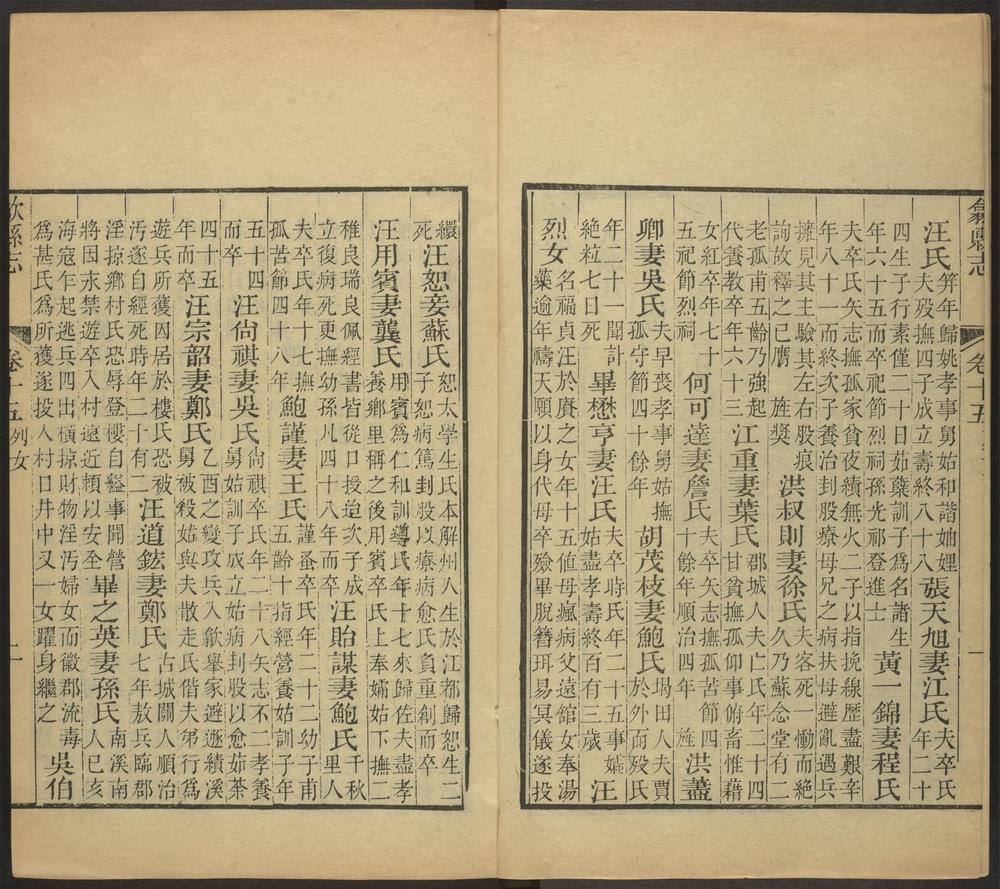 歙縣志
卷十五
一
汪氏笄年歸姚孝事舅姑和諧妯娌夫歿撫四子成立壽終八十八張天旭妻江氏夫卒氏年二十
四生子行素僅二十日茹蘗訓子爲名諸生年六十五而卒祀節烈祠孫光祁登進士黃一錦妻程氏
夫卒氏矢志撫孤家貧夜績無火二子以指挽線歷盡艱辛年八十一而終次子養治刲股療母兄之病扶母避亂遇兵
擁見其主驗其左右股痕詢故釋之已膺旌獎洪叔則妻徐氏夫客死一慟而絕久乃蘇念堂有二
老孤甫五齡乃強起代養教卒年六十三江重妻葉氏郡城人夫亡氏年二十四甘貧撫孤仰事俯畜惟藉
女紅卒年七十五祀節烈祠何可達妻詹氏夫卒矢志撫孤苦節四十餘年順治四年旌洪藎
卿妻吳氏夫早喪孝事舅姑撫孤守節四十餘年胡茂枝妻鮑氏堨田人夫賈於外而歿氏
年二十一聞訃絕粒七日死畢懋亨妻汪氏夫卒時氏年二十五事孀姑盡孝壽終百有三歲汪
烈女名福貞汪於賡之女年十五值母瘋病父遠館女奉湯藥逾年禱天願以身代母卒殮畢脫簪珥易冥儀遂投
繯死汪恕妾蘇氏恕太學生氏本解州人生於江都歸恕生二子恕病篤刲股以療病愈氏負重創而卒
汪用賓妻龔氏用賓爲仁和訓導氏年十七來歸佐夫盡孝養鄉里稱之後用賓卒氏上奉孀姑下撫二
稚良瑞良佩經書皆從口授迨次子成立復病死更撫幼孫凡四十八年而卒汪貽謀妻鮑氏千秋里人
夫卒氏年十七撫孤苦節四十八年鮑謹妻王氏謹蚤卒氏年二十二幼子甫五齡十指經營養姑訓子年
五十四而卒汪尙祺妻吳氏尙祺卒氏年二十八矢志不二孝養舅姑訓子成立姑病刲股以愈茹荼
四十五年而卒汪宗韶妻鄭氏乙酉之變攻兵入歙舉家避遯績溪舅被殺姑與夫散走氏偕夫弟行爲
遊兵所獲囚居於樓氏恐被汚遂自經死時年二十有二汪道鉉妻鄭氏古城關人順治七年敖兵臨郡
淫掠鄉村氏恐辱登樓自縊事聞營將因永禁遊卒入村遠近賴以安全畢之英妻孫氏南溪南人已亥
海寇乍起逃兵四出橫掠財物淫汚婦女而徽郡流毒爲甚氏爲所獲遂投入村口井中又一女躍身繼之吳伯
歙縣志
卷十五
列女
二